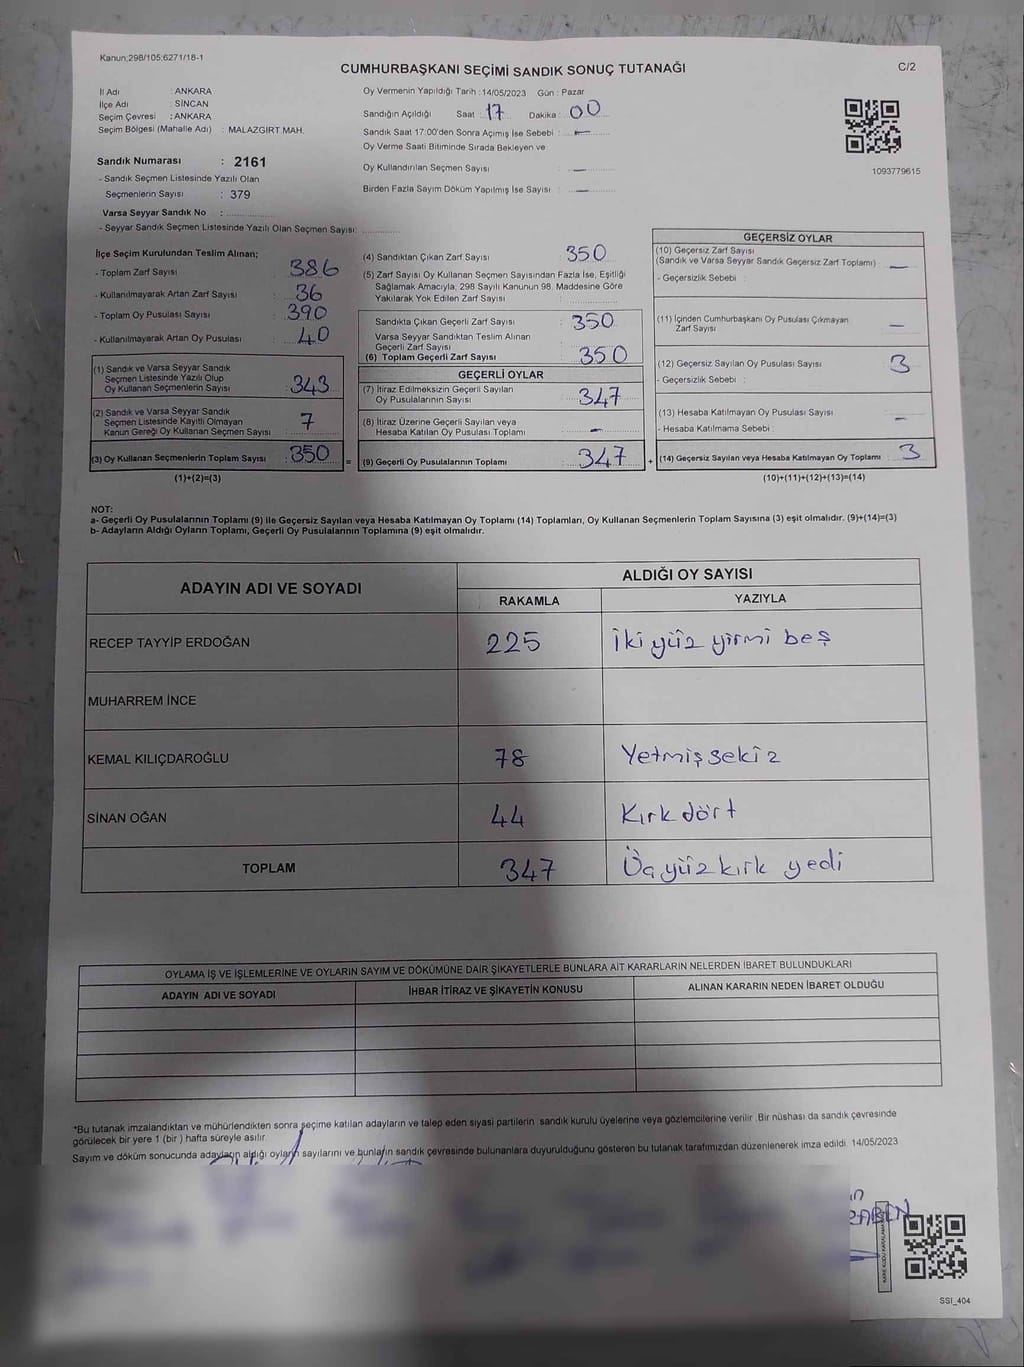 Kanun;298/105;6271/18-1
CUMHURBAŞKANI SEÇİMİ SANDIK SONUÇ TUTANAĞI
C/2
İl Adı : ANKARA
İlçe Adı : SİNCAN
Seçim Çevresi : ANKARA
Seçim Bölgesi (Mahalle Adı) : MALAZGİRT MAH.
Sandık Numarası : 2161
- Sandık Seçmen Listesinde Yazılı Olan
Seçmenlerin Sayısı : 379
Varsa Seyyar Sandık No :
- Seyyar Sandık Seçmen Listesinde Yazılı Olan Seçmen Sayısı:
Oy Vermenin Yapıldığı Tarih : 14/05/2023 Gün : Pazar
Sandığın Açıldığı Saat : 17 Dakika : 00
Sandık Saat 17:00'den Sonra Açımış İse Sebebi : —
Oy Verme Saati Bitiminde Sırada Bekleyen ve
Oy Kullandırılan Seçmen Sayısı : —
Birden Fazla Sayım Döküm Yapılmış İse Sayısı : —
1093779615
İlçe Seçim Kurulundan Teslim Alınan;
- Toplam Zarf Sayısı : 386
- Kullanılmayarak Artan Zarf Sayısı : 36
- Toplam Oy Pusulası Sayısı : 390
- Kullanılmayarak Artan Oy Pusulası : 40
(1) Sandık ve Varsa Seyyar Sandık
Seçmen Listesinde Yazılı Olup
Oy Kullanan Seçmenlerin Sayısı : 343
(2) Sandık ve Varsa Seyyar Sandık
Seçmen Listesinde Kayıtlı Olmayan
Kanun Gereği Oy Kullanan Seçmen Sayısı : 7
(3) Oy Kullanan Seçmenlerin Toplam Sayısı : 350 =
(1)+(2)=(3)
(4) Sandıktan Çıkan Zarf Sayısı : 350
(5) Zarf Sayısı Oy Kullanan Seçmen Sayısından Fazla İse, Eşitliği
Sağlamak Amacıyla; 298 Sayılı Kanunun 98. Maddesine Göre
Yakılarak Yok Edilen Zarf Sayısı :
Sandıkta Çıkan Geçerli Zarf Sayısı : 350
Varsa Seyyar Sandıktan Teslim Alınan
Geçerli Zarf Sayısı :
(6) Toplam Geçerli Zarf Sayısı : 350
GEÇERLİ OYLAR
(7) İtiraz Edilmeksizin Geçerli Sayılan
Oy Pusulalarının Sayısı : 347
(8) İtiraz Üzerine Geçerli Sayılan veya
Hesaba Katılan Oy Pusulası Toplamı : —
(9) Geçerli Oy Pusulalarının Toplamı : 347 +
GEÇERSİZ OYLAR
(10) Geçersiz Zarf Sayısı
(Sandık ve Varsa Seyyar Sandık Geçersiz Zarf Toplamı) : —
- Geçersizlik Sebebi :
(11) İçinden Cumhurbaşkanı Oy Pusulası Çıkmayan
Zarf Sayısı : —
(12) Geçersiz Sayılan Oy Pusulası Sayısı : 3
- Geçersizlik Sebebi :
(13) Hesaba Katılmayan Oy Pusulası Sayısı : —
- Hesaba Katılmama Sebebi :
(14) Geçersiz Sayılan veya Hesaba Katılmayan Oy Toplamı : 3
(10)+(11)+(12)+(13)=(14)
NOT:
a- Geçerli Oy Pusulalarının Toplamı (9) ile Geçersiz Sayılan veya Hesaba Katılmayan Oy Toplamı (14) Toplamları, Oy Kullanan Seçmenlerin Toplam Sayısına (3) eşit olmalıdır. (9)+(14)=(3)
b- Adayların Aldığı Oyların Toplamı, Geçerli Oy Pusulalarının Toplamına (9) eşit olmalıdır.
ADAYIN ADI VE SOYADI
ALDIĞI OY SAYISI
RAKAMLA YAZIYLA
RECEP TAYYİP ERDOĞAN 225 İki yüz yirmi beş
MUHARREM İNCE
KEMAL KILIÇDAROĞLU 78 Yetmiş sekiz
SİNAN OĞAN 44 Kırk dört
TOPLAM 347 Üç yüz kırk yedi
OYLAMA İŞ VE İŞLEMLERİNE VE OYLARIN SAYIM VE DÖKÜMÜNE DAİR ŞİKAYETLERLE BUNLARA AİT KARARLARIN NELERDEN İBARET BULUNDUKLARI
ADAYIN ADI VE SOYADI İHBAR İTİRAZ VE ŞİKAYETİN KONUSU ALINAN KARARIN NEDEN İBARET OLDUĞU
*Bu tutanak imzalandıktan ve mühürlendikten sonra seçime katılan adayların ve talep eden siyasi partilerin sandık kurulu üyelerine veya gözlemcilerine verilir. Bir nüshası da sandık çevresinde
görülecek bir yere 1 (bir ) hafta süreyle asılır.
Sayım ve döküm sonucunda adayların aldığı oyların sayılarını ve bunların sandık çevresinde bulunanlara duyurulduğunu gösteren bu tutanak tarafımızdan düzenlenerek imza edildi. 14/05/2023
SSI_404